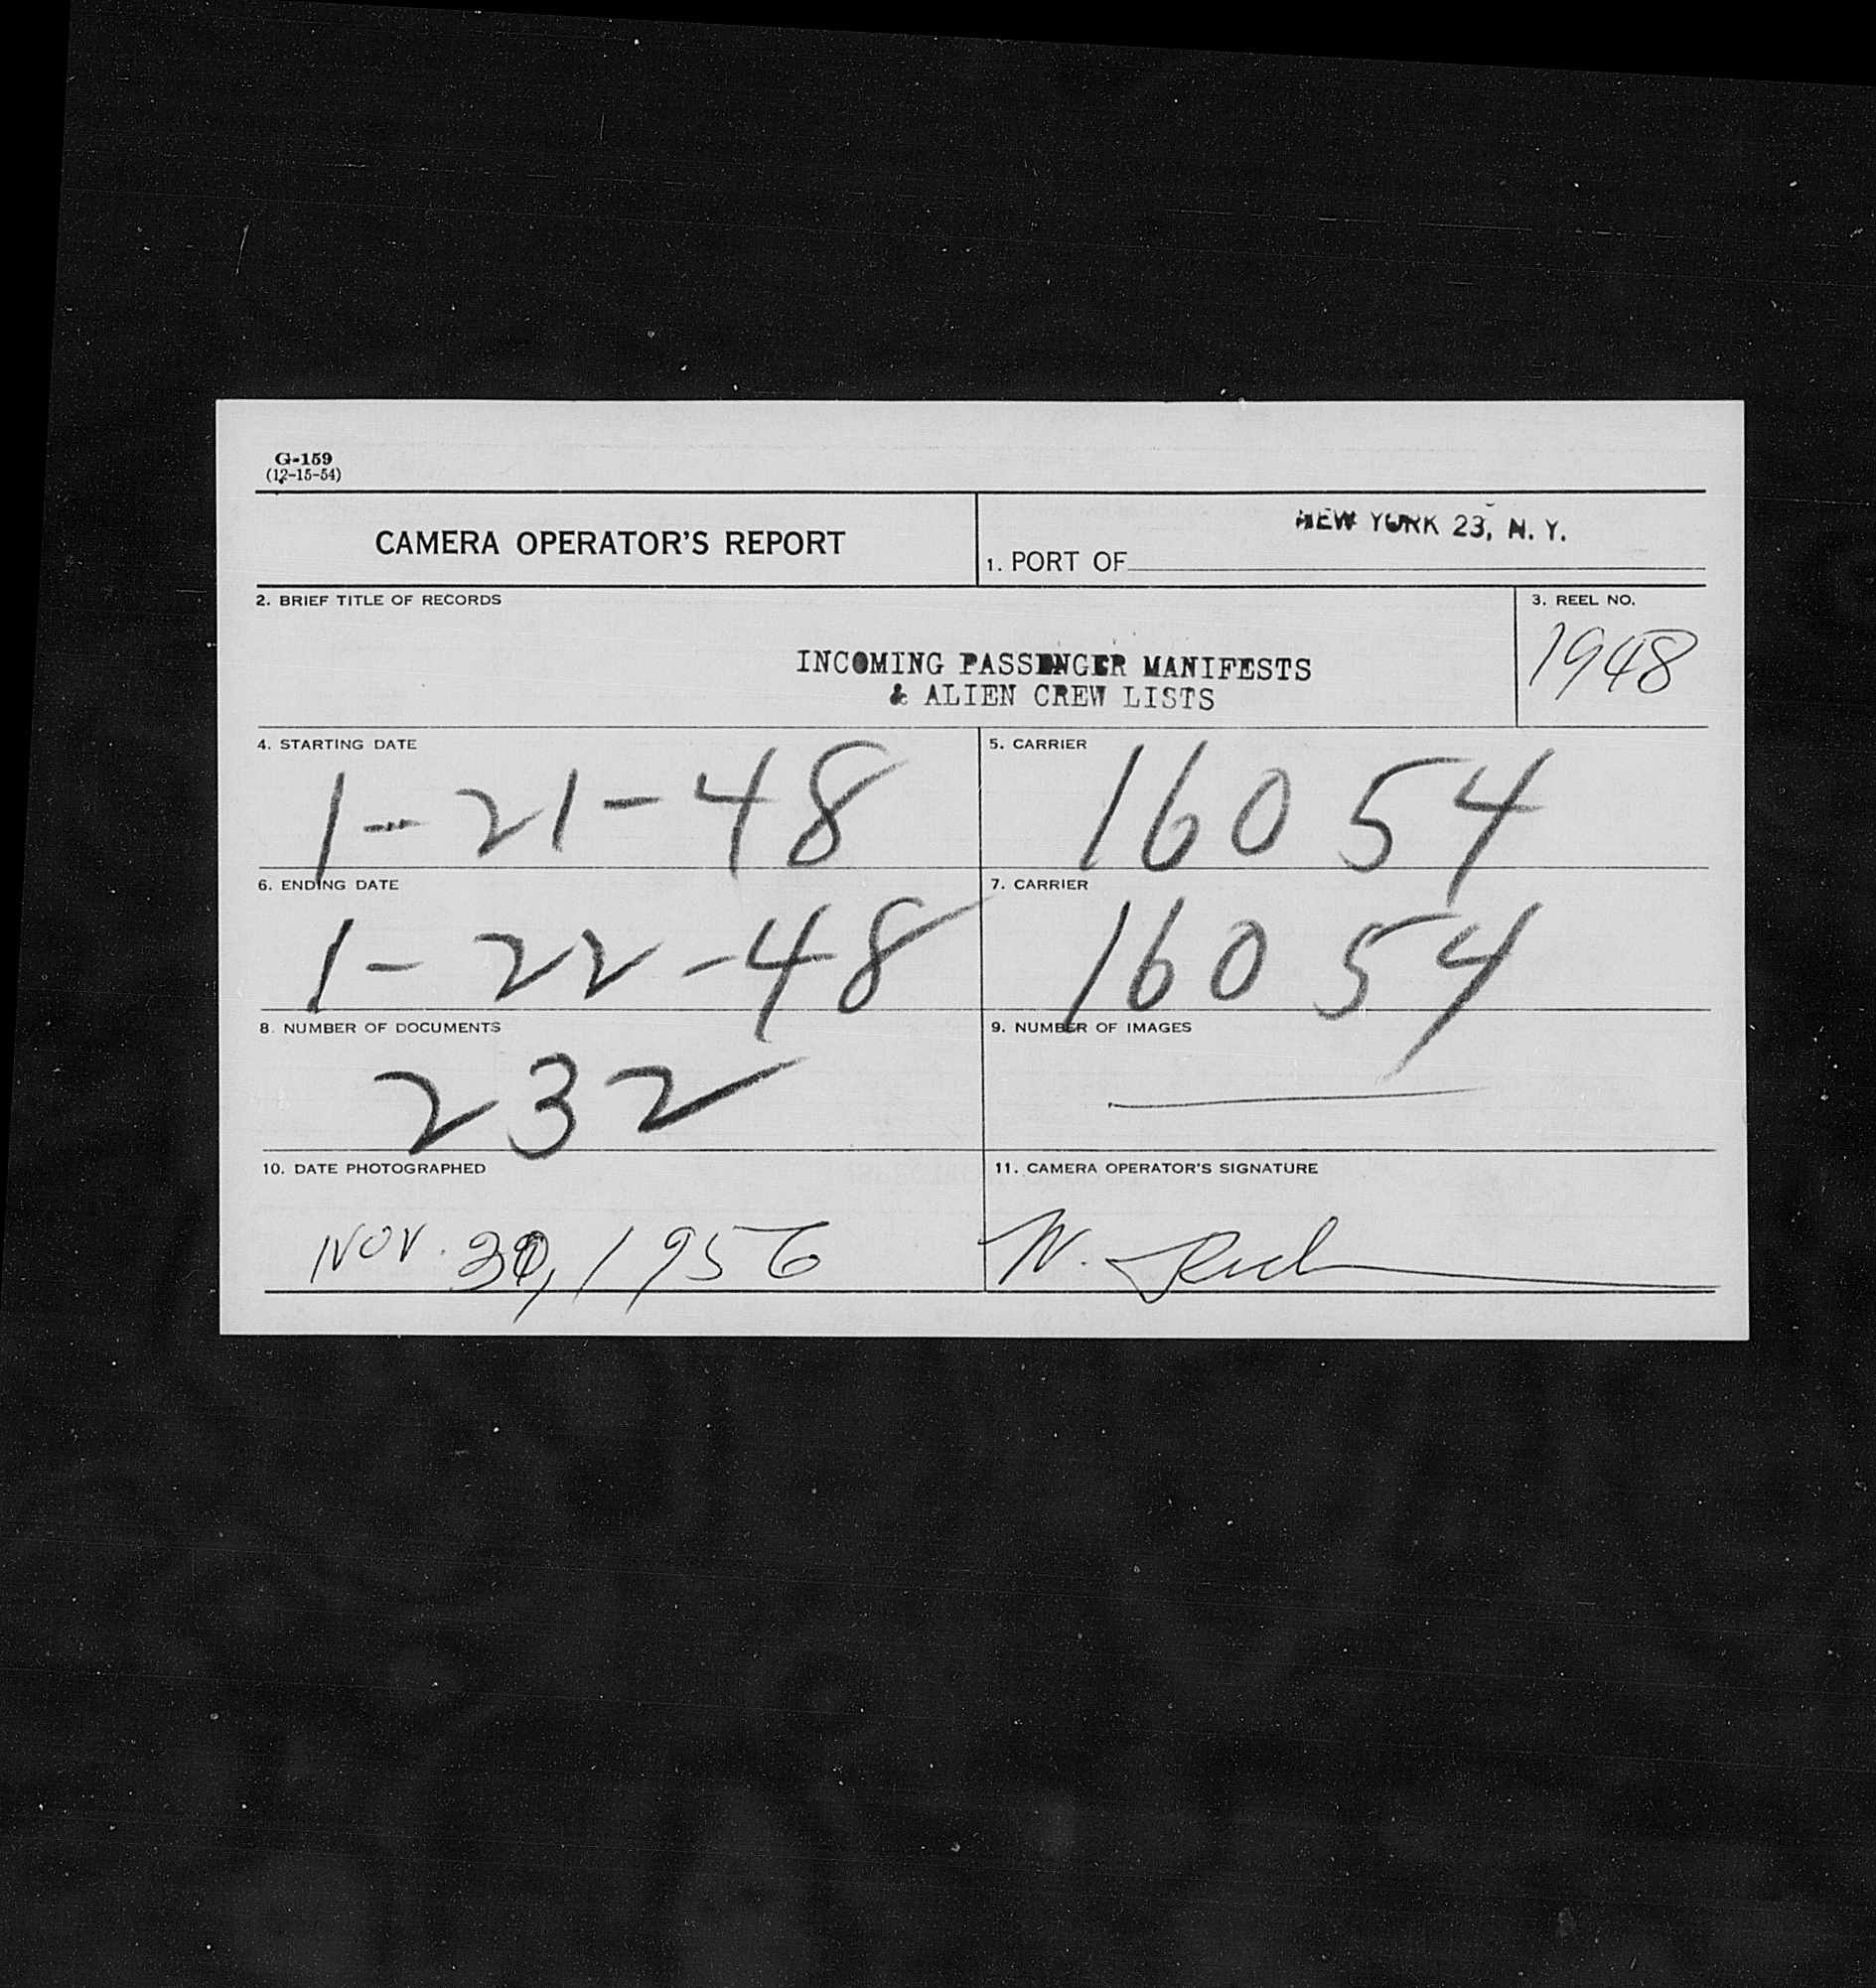 G-159
(12-15-54)
CAMERA OPERATOR'S REPORT
NEW YORK 23, N. Y.
1. PORT OF
2. BRIEF TITLE OF RECORDS
3. REEL NO.
1948
INCOMING PASSENGER MANIFESTS
& ALIEN CREW LISTS
4. STARTING DATE
1-21-48
5. CARRIER
16054
6. ENDING DATE
1-22-48
7. CARRIER
16054
8. NUMBER OF DOCUMENTS
232
9. NUMBER OF IMAGES
10. DATE PHOTOGRAPHED
Nov. 30, 1956
11. CAMERA OPERATOR'S SIGNATURE
W.